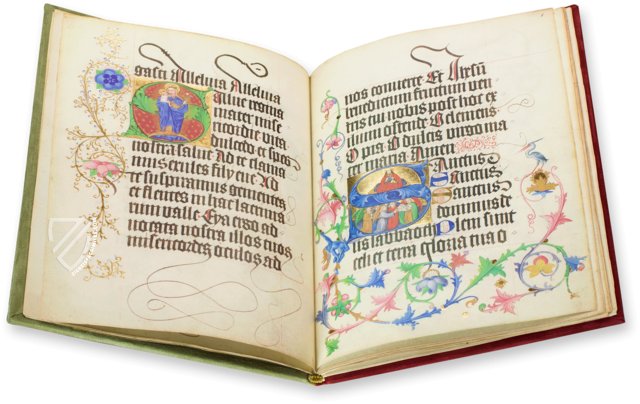 gasti Alleluia Alleluia
alue regina
mater mise
ricordie vita
dulcedo et spes
nostra salue Ad te clama
mus exules filij eue Ad
te suspiramus gementes
et flentes in hac lacrima
rum valle Eya ergo ad
uocata nostra illos tuos
misericordes oculos ad
nos conuerte Et Jhesū
benedictum fructum ven
tris tui nobis post hoc ex
ilium ostende O clemens
O pia O dulcis virgo ma
ria Amen
Sanctus
Sanctus
Sanctus
dominus de
us sabbaoth Pleni sunt
celi et terra gloria tua O